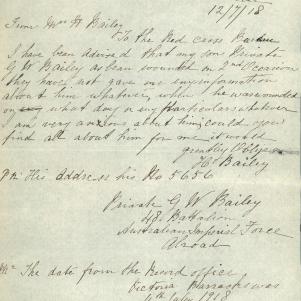 12/7/18
From Mrs H Bailey
To the Red Cross
I have been advised that my son Private
G W Bailey as been wounded on 2nd Occasion
they have not gave me eny information
about him whatever, when he was wounded
on what day or eny Particulars whatever
I am very anxious about him, could you
find all about him for me it would
greatly Oblige
H Bailey
His Address his No 5656
Private G W Bailey
48 Battalion
Australian Imperial Force
Abroad
The date from the Record office
Victoria Barracks was
1918